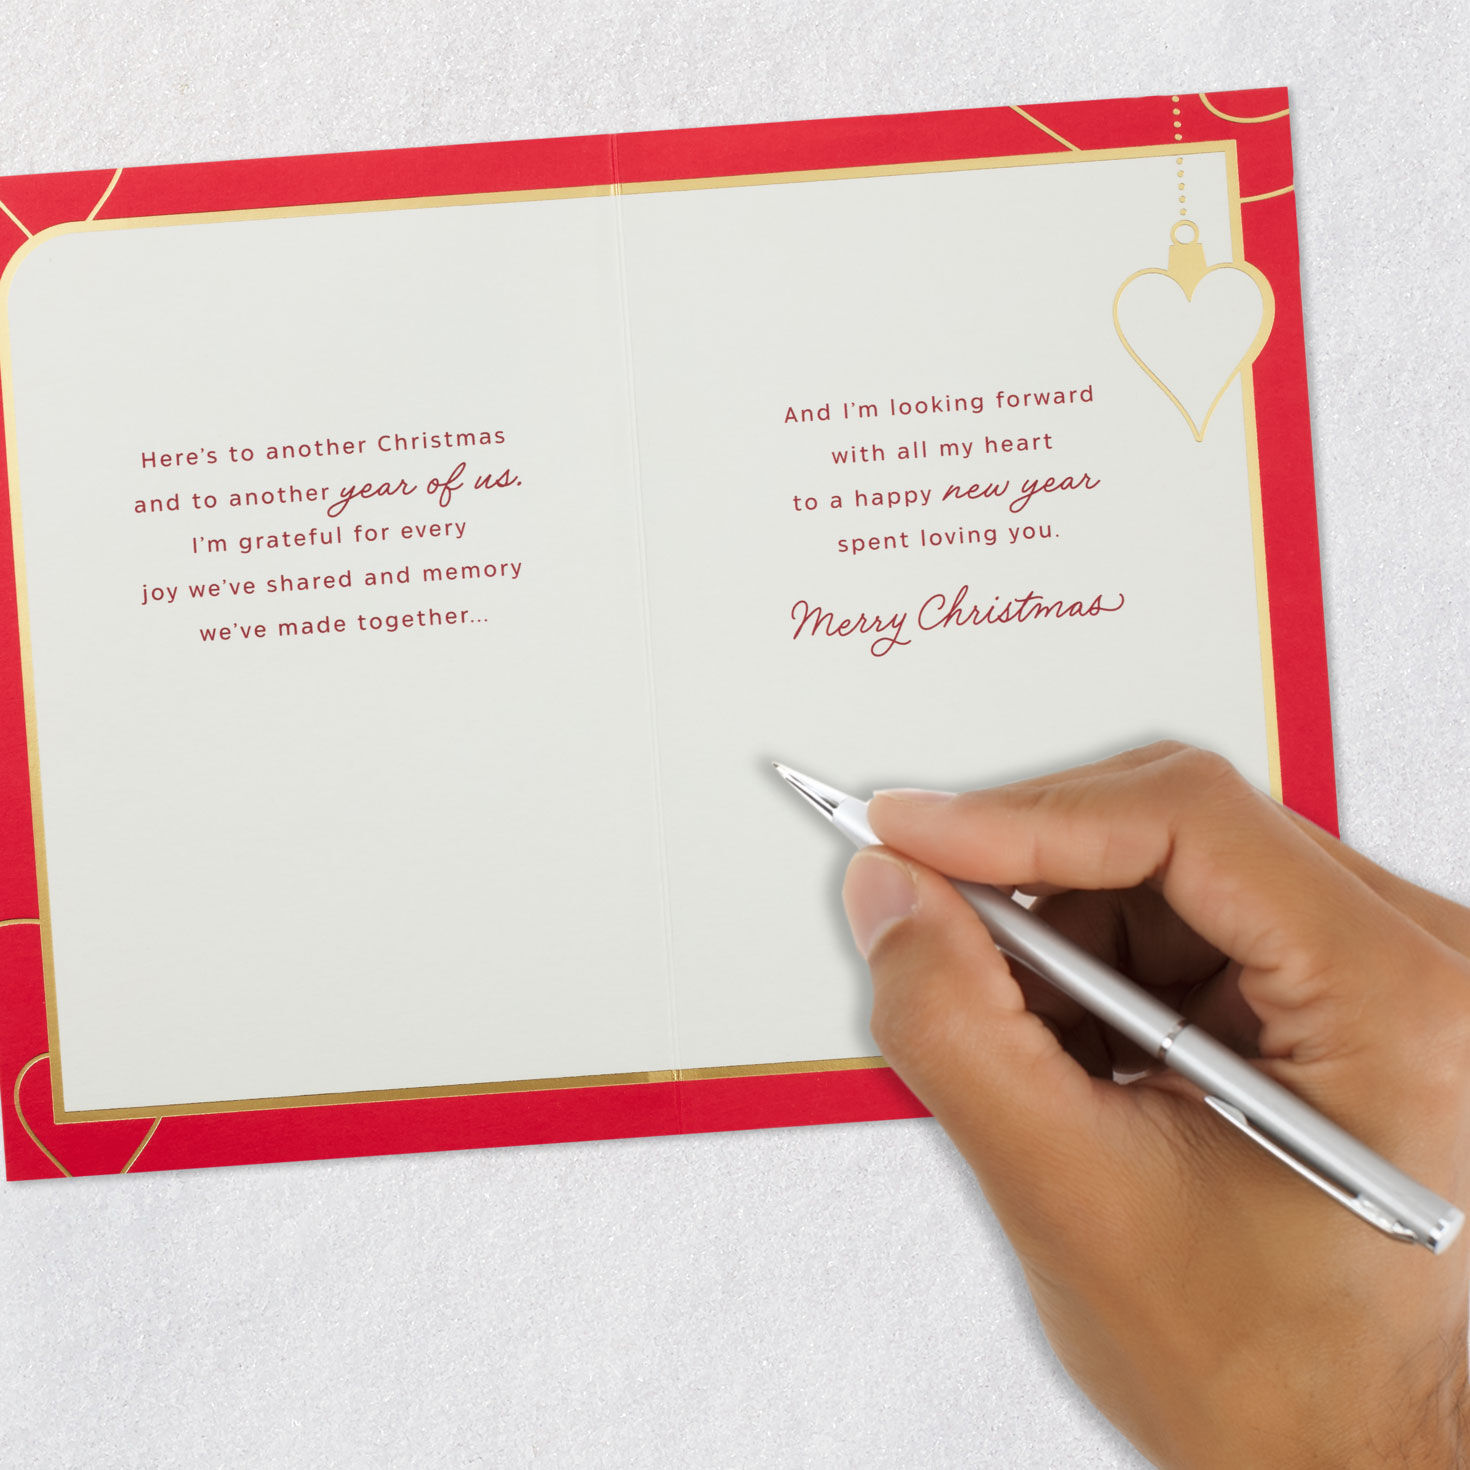 Here's to another Christmas
and to another year of us.
I'm grateful for every
joy we've shared and memory
we've made together...
And I'm looking forward
with all my heart
to a happy new year
spent loving you.
Merry Christmas